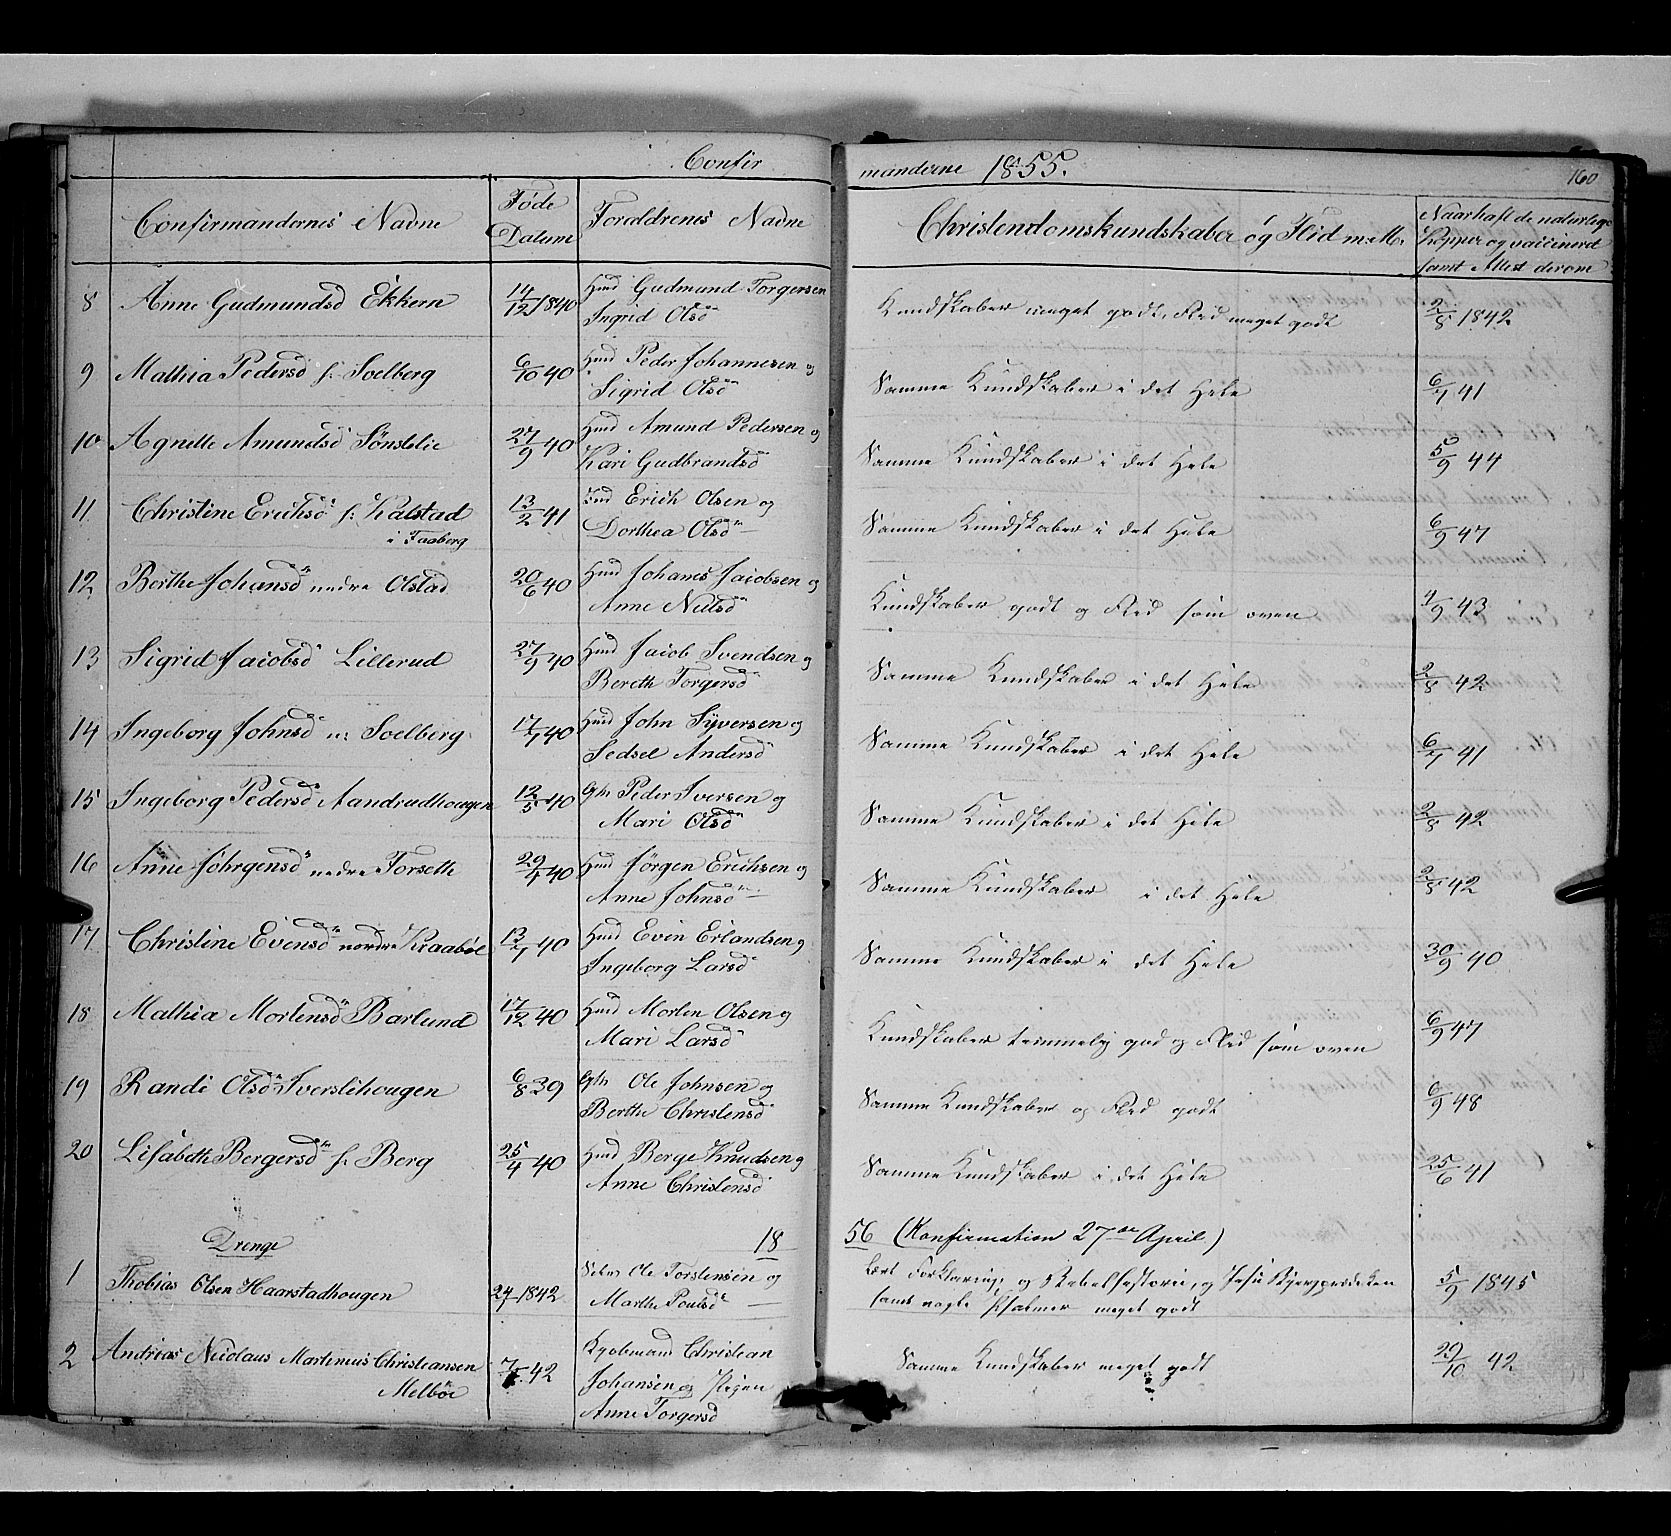 Confirmanderne 1855.
160
Confirmandernes Navne
Føde Datum
Foraldrenes Navne
Christendomskundskaber og Flid m: M.
Naar haft de naturlige Kopper og vaccineret samt Attest derom
8 Anne Gudmundsd Ekkern 14/12 1840 Huusmd Gudmund Torgersen Kundskaber meget godt, Flid meget godt 2/8 1842
Ingrid Olsd
9 Mathia Pedersd s: Soelberg 6/10 40 Hmd Peder Johannesen og Samme Kundskaber i det Hele 6/7 41
Sigrid Olsd
10 Agnette Amundsd Sønstelie 27/9 40 Hmd Amund Pedersen og Samme Kundskaber i det Hele 5/9 44
Kari Gudbrandsd
11 Christine Erichsd s: Kalstad 13/2 41 Erich Olsen og Samme Kundskaber i det Hele 6/9 47
i Faaberg Dorthea Olsd
12 Berthe Johansd nedre Olstad 20/6 40 Hmd Johanes Jacobsen og Kundskaber godt og Flid som oven 9 43
Anne Nilsd
13 Sigrid Jacobsd Lillerud 27/9 40 Hmd Jacob Svendsen og Samme Kundskaber i det Hele 2/8 42
Bereth Torgersd
14 Ingeborg Johnsd n: Soelberg 17/7 40 Hmd John Syversen og Samme Kundskaber i det Hele 6/7 41
Sedsel Andersd
15 Ingeborg Pedersd Aandrudhougen 12/5 40 Gm Peder Iversen og Samme Kundskaber i det Hele 2/8 42
Mari Olsd
16 Anne Jøhrgensd nedre Forseth 29 40 Hmd Jørgen Erichsen og Samme Kundskaber i det Hele 2/8 42
Anne Johnsd
17 Christine Evensd nordre Kraabøl 13/7 40 Hmd Even Erlandsen og Samme Kundskaber i det Hele 30/9 40
Ingeborg Larsd
18 Mathia Mortensd Barlund 17/12 40 Hmd Morten Olsen og Kundskaber temmelig god og Flid som oven 6/9 47
Mari Larsd
19 Randi Olsd Iverslihougen 6/8 39 Gm Ole Johnsen og Samme Kundskaber og Flid godt 6/9 48
Berthe Christensd
20 Lisabeth Bergersd s: Berg 25/4 40 Hmd Berge Knudsen og Samme Kundskaber i det Hele 25/6 41
Anne Christensd
Drenge
1856 (Konfirmation 27de April)
1 Thobias Olsen Haarstadhougen 1842 Ole Torstensen og lært Forklaring og Bibelhistorie, og Jesu Bjergprædiken 5/9 1845
Marthe Poulsd samt nogle Psalmer meget godt
2 Andrias Nicolaus Martinus Christiansen 42 Kjøbmand Christian Samme Kundskaber meget godt 29/10 42
Melbøe Johansen og Pigen
Anne Torgersd